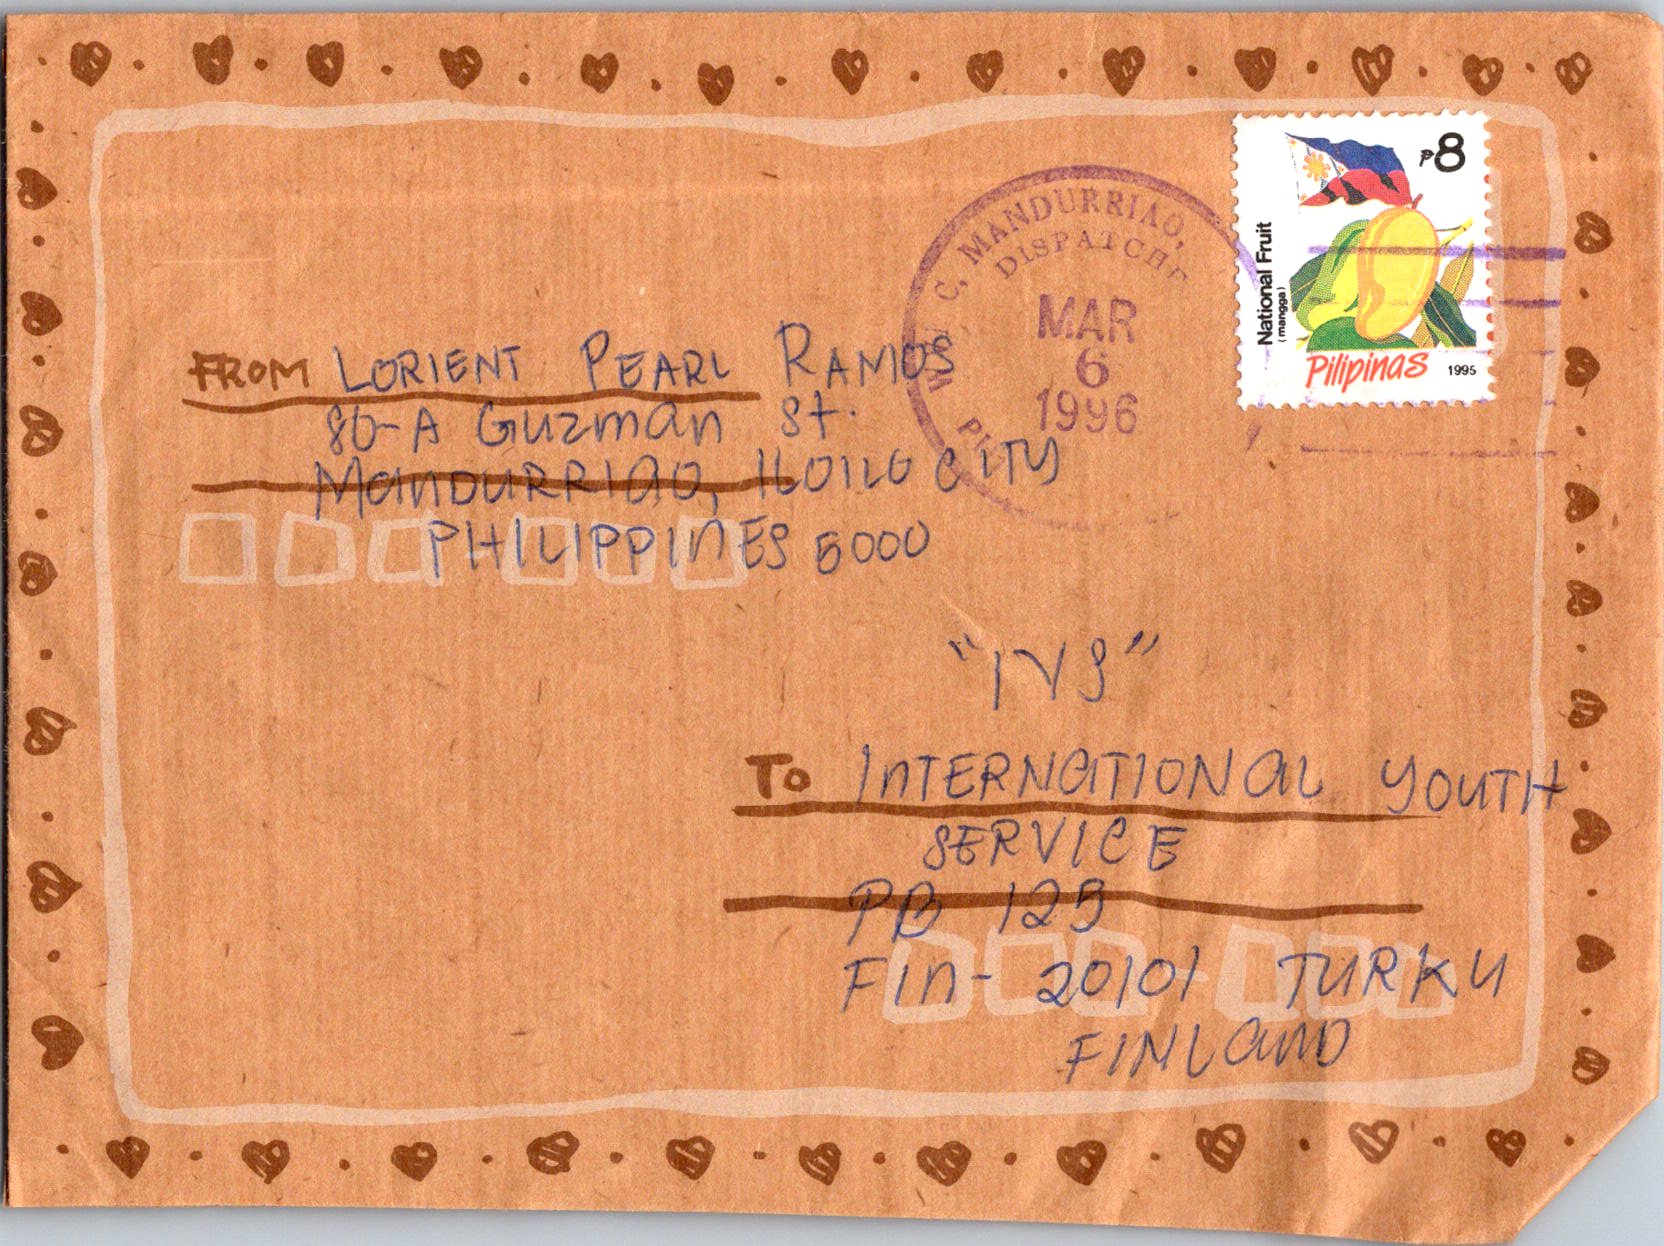 ₱8
National Fruit
(mangga)
Pilipinas 1995
C. MANDURRIAO,
DISPATCH
MAR
6
1996
FROM LORIENT PEARL RAMOS
80-A Guzman St.
MANDURRIAO, ILOILO CITY
PHILIPPINES 5000
"IYS"
To INTERNATIONAL YOUTH
SERVICE
PB 125
FIN- 20101 TURKU
FINLAND